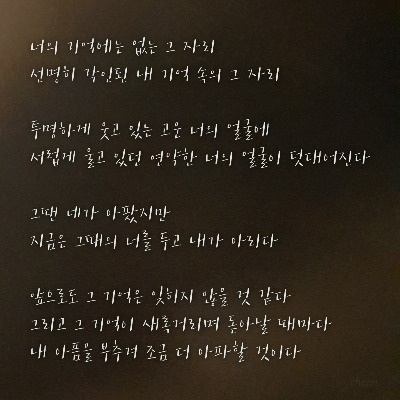 너의 기억에는 없는 그 자리
선명히 각인된 내 기억 속의 그 자리
투명하게 웃고 있는 고운 너의 얼굴에
서럽게 울고 있던 연약한 너의 얼굴이 덧대어진다
그땐 네가 아팠지만
지금은 그때의 너를 두고 내가 아리다
앞으로도 그 기억은 잊히지 않을 것 같다
그리고 그 기억이 새록거리며 돋아날 때마다
내 아픔을 부추겨 조금 더 아파할 것이다